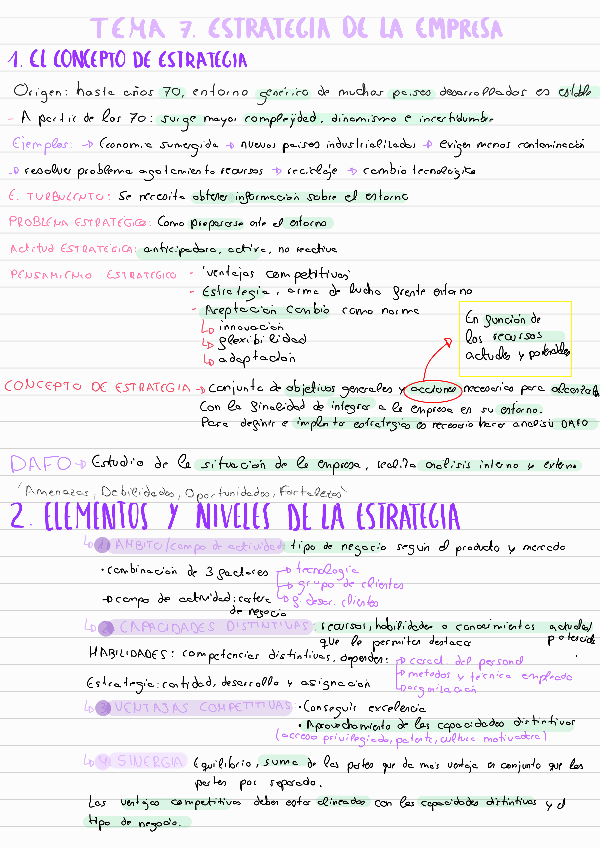 TEMA 7. ESTRATEGIA DE LA EMPRESA
1. EL CONCEPTO DE ESTRATEGIA
Origen: hasta años 70, entorno genérico de muchos países desarrollados es estable
- A partir de los 70: surge mayor complejidad, dinamismo e incertidumbre
Ejemplos: → Economía sumergida → nuevos países industrializados → exigen menos contaminación
→ resolver problema agotamiento recursos → reciclaje → cambio tecnológico
E. TURBULENTO: Se necesita obtener información sobre el entorno
PROBLEMA ESTRATÉGICO: Como prepararse ante el entorno
Actitud ESTRATÉGICA: anticipadora, activa, no reactiva
PENSAMIENTO ESTRATEGICO - "ventajas competitivas"
- Estrategia, arma de lucha frente entorno
- Aceptación cambio como norma
↳ innovación
↳ flexibilidad
↳ adaptación
En función de
los recursos
actuales y potenciales
CONCEPTO DE ESTRATEGIA → Conjunto de objetivos generales y acciones necesarias para alcanzarlos
Con la finalidad de integrar a la empresa en su entorno.
Para definir e implantar estrategias es necesario hacer analisis DAFO
DAFO → Estudio de la situación de la empresa, realiza analisis interno y externo
"Amenazas, Debilidades, Oportunidades, Fortalezas"
2. ELEMENTOS Y NIVELES DE LA ESTRATEGIA
↳ 1) AMBITO/campo de actividad tipo de negocio según el producto y mercado
• combinación de 3 factores → tecnología
→ grupo de clientes
→ campo de actividad: cartera ↳ f. deser. clientes
de negocio
↳ 2) CAPACIDADES DISTINTIVAS: recursos, habilidades o conocimientos actuales
que le permiten destacar potencial
HABILIDADES: competencias distintivas, dependen: → caract. del personal
→ metodos y técnica empleada
Estrategia: cantidad, desarrollo y asignación → organización
↳ 3) VENTAJAS COMPETITIVAS • Conseguir excelencia
• Aprovechamiento de las capacidades distintivas
(acceso privilegiado, patente, cultura motivadora)
↳ 4) SINERGIA Equilibrio, suma de las partes que da más ventaja en conjunto que las
partes por separado.
Las ventajas competitivas deben estar alineadas con las capacidades distintivas y el
tipo de negocio.